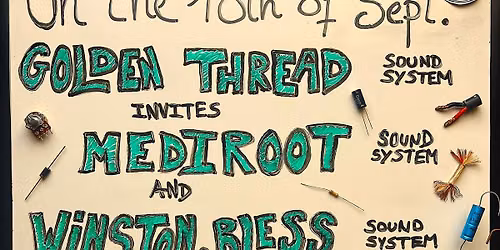 On the of Sept.
GOLDEN THREAD
SOUND
SYSTEM
INVITES
MEDIROOT
SOUND
SYSTEM
AND
WINSTON BLESS
SOUND
SYSTEM